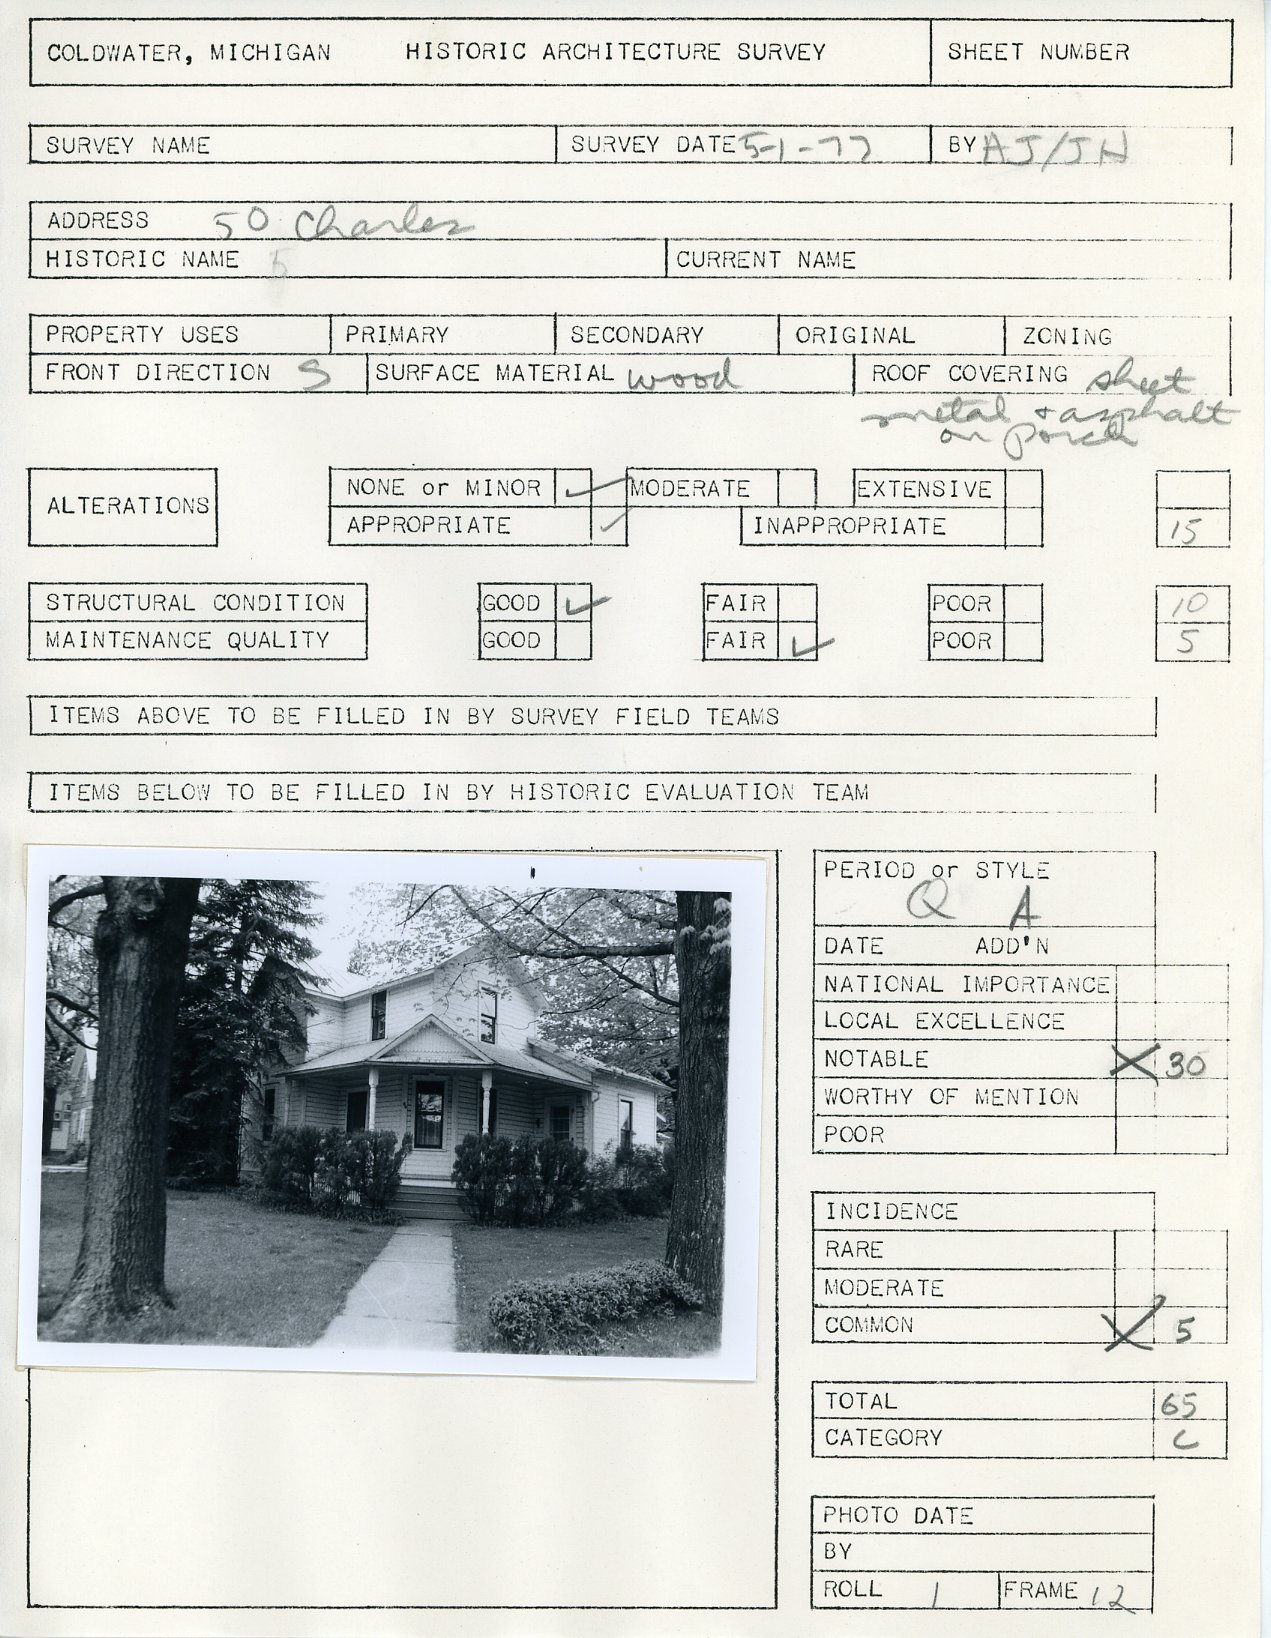 COLDWATER, MICHIGAN HISTORIC ARCHITECTURE SURVEY SHEET NUMBER
SURVEY NAME SURVEY DATE 5-1-77 BY AJ/JH
ADDRESS 50 Charles
HISTORIC NAME 5 CURRENT NAME
PROPERTY USES PRIMARY SECONDARY ORIGINAL ZONING
FRONT DIRECTION S SURFACE MATERIAL wood ROOF COVERING sheet
metal + asphalt
on porch
ALTERATIONS NONE or MINOR ✓ MODERATE EXTENSIVE
APPROPRIATE ✓ INAPPROPRIATE 15
STRUCTURAL CONDITION GOOD ✓ FAIR POOR 10
MAINTENANCE QUALITY GOOD FAIR ✓ POOR 5
ITEMS ABOVE TO BE FILLED IN BY SURVEY FIELD TEAMS
ITEMS BELOW TO BE FILLED IN BY HISTORIC EVALUATION TEAM
PERIOD or STYLE
Q A
DATE ADD'N
NATIONAL IMPORTANCE
LOCAL EXCELLENCE
NOTABLE X 30
WORTHY OF MENTION
POOR
INCIDENCE
RARE
MODERATE
COMMON X 5
TOTAL 65
CATEGORY C
PHOTO DATE
BY
ROLL 1 FRAME 12